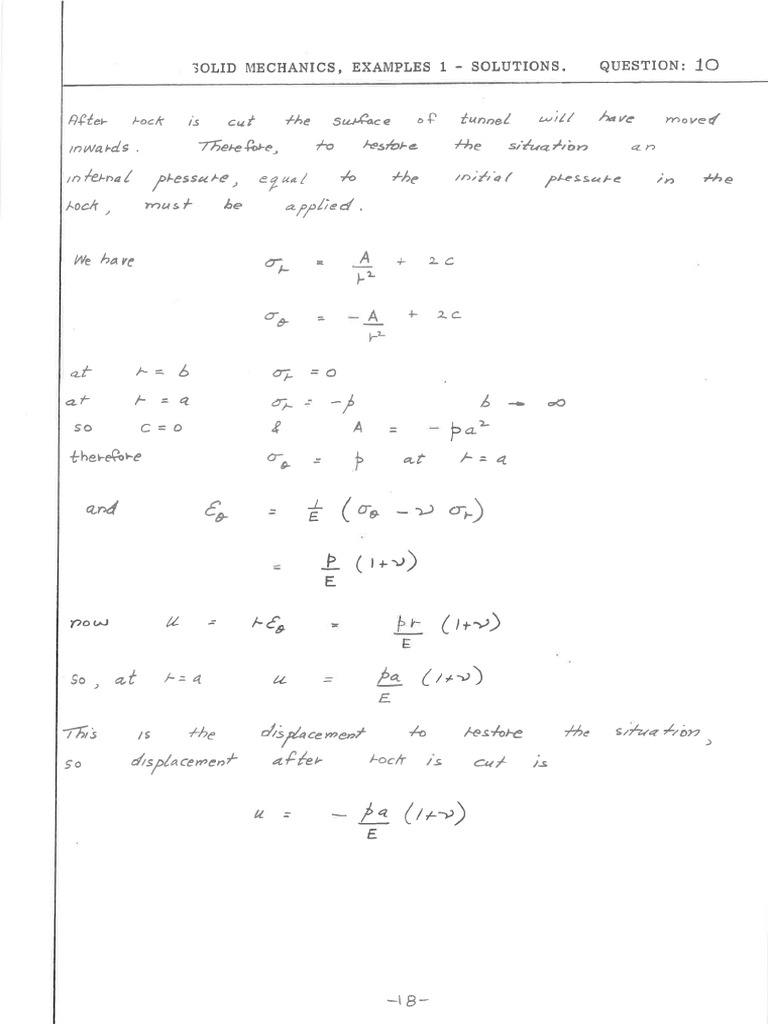 SOLID MECHANICS, EXAMPLES 1 - SOLUTIONS. QUESTION: 10
After rock is cut the surface of tunnel will have moved
inwards. Therefore, to restore the situation an
internal pressure, equal to the initial pressure in the
rock, must be applied.
We have σr = A/r² + 2c
σθ = -A/r² + 2c
at r = b σr = 0
at r = a σr = -p b → ∞
so c = 0 & A = -pa²
therefore σθ = p at r = a
and εθ = 1/E (σθ - ν σr)
= p/E (1+ν)
now u = rεθ = pr/E (1+ν)
so, at r=a u = pa/E (1+ν)
This is the displacement to restore the situation,
so displacement after rock is cut is
u = - pa/E (1+ν)
-18-